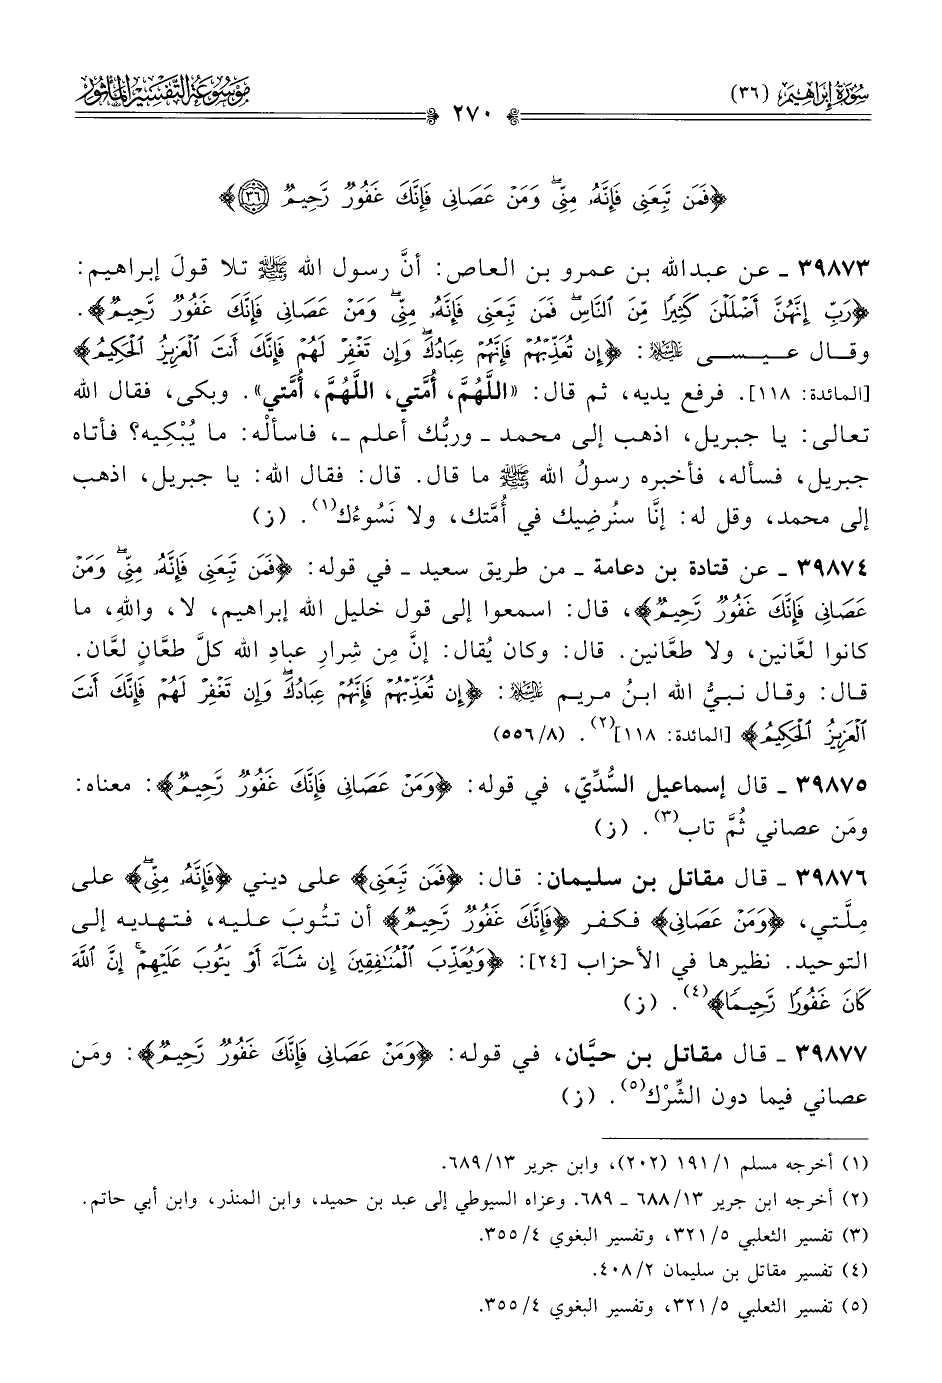 سورة إبراهيم (٣٦)
موسوعة التفسير المأثور
٢٧٠
﴿فَمَن تَبِعَنِي فَإِنَّهُۥ مِنِّيۖ وَمَنۡ عَصَانِي فَإِنَّكَ غَفُورٌ رَّحِيمٌ ٣٦﴾
٣٩٨٧٣ ـ عن عبدالله بن عمرو بن العاص: أنَّ رسول الله ﷺ تلا قولَ إبراهيم:
﴿رَبِّ إِنَّهُنَّ أَضۡلَلۡنَ كَثِيرًا مِّنَ ٱلنَّاسِۖ فَمَن تَبِعَنِي فَإِنَّهُۥ مِنِّيۖ وَمَنۡ عَصَانِي فَإِنَّكَ غَفُورٌ رَّحِيمٌ﴾.
وقال عيسى ﵇: ﴿إِن تُعَذِّبۡهُمۡ فَإِنَّهُمۡ عِبَادُكَۖ وَإِن تَغۡفِرۡ لَهُمۡ فَإِنَّكَ أَنتَ ٱلۡعَزِيزُ ٱلۡحَكِيمُ﴾
[المائدة: ١١٨]. فرفع يديه، ثم قال: «اللَّهُمَّ، أُمَّتي، اللَّهُمَّ، أُمَّتي». وبكى، فقال الله
تعالى: يا جبريل، اذهب إلى محمد ـ وربُّك أعلم ـ، فاسألْه: ما يُبْكيه؟ فأتاه
جبريل، فسأله، فأخبره رسولُ الله ﷺ ما قال. قال: فقال الله: يا جبريل، اذهب
إلى محمد، وقل له: إنَّا سنُرضِيك في أُمَّتك، ولا نَسُوءُك(١). (ز)
٣٩٨٧٤ ـ عن قتادة بن دعامة ـ من طريق سعيد ـ في قوله: ﴿فَمَن تَبِعَنِي فَإِنَّهُۥ مِنِّيۖ وَمَنۡ
عَصَانِي فَإِنَّكَ غَفُورٌ رَّحِيمٌ﴾، قال: اسمعوا إلى قول خليل الله إبراهيم، لا، واللهِ، ما
كانوا لعَّانين، ولا طعَّانين. قال: وكان يُقال: إنَّ مِن شِرارِ عبادِ الله كلَّ طعَّانٍ لعَّان.
قال: وقال نبيُّ الله ابنُ مريم ﵇: ﴿إِن تُعَذِّبۡهُمۡ فَإِنَّهُمۡ عِبَادُكَۖ وَإِن تَغۡفِرۡ لَهُمۡ فَإِنَّكَ أَنتَ
ٱلۡعَزِيزُ ٱلۡحَكِيمُ﴾ [المائدة: ١١٨](٢). (٥٥٦/٨)
٣٩٨٧٥ ـ قال إسماعيل السُّدِّيّ، في قوله: ﴿وَمَنۡ عَصَانِي فَإِنَّكَ غَفُورٌ رَّحِيمٌ﴾: معناه:
ومَن عصاني ثُمَّ تاب(٣). (ز)
٣٩٨٧٦ ـ قال مقاتل بن سليمان: قال: ﴿فَمَن تَبِعَنِي﴾ على ديني ﴿فَإِنَّهُۥ مِنِّيۖ﴾ على
مِلَّتي، ﴿وَمَنۡ عَصَانِي﴾ فكفر ﴿فَإِنَّكَ غَفُورٌ رَّحِيمٌ﴾ أن تتُوبَ عليه، فتهديه إلى
التوحيد. نظيرها في الأحزاب [٢٤]: ﴿وَيُعَذِّبَ ٱلۡمُنَٰفِقِينَ إِن شَآءَ أَوۡ يَتُوبَ عَلَيۡهِمۡۚ إِنَّ ٱللَّهَ
كَانَ غَفُورًا رَّحِيمًا﴾(٤). (ز)
٣٩٨٧٧ ـ قال مقاتل بن حيَّان، في قوله: ﴿وَمَنۡ عَصَانِي فَإِنَّكَ غَفُورٌ رَّحِيمٌ﴾: ومَن
عصاني فيما دون الشِّرْك(٥). (ز)
(١) أخرجه مسلم ١/ ١٩١ (٢٠٢)، وابن جرير ١٣/ ٦٨٩.
(٢) أخرجه ابن جرير ١٣/ ٦٨٨ ـ ٦٨٩. وعزاه السيوطي إلى عبد بن حميد، وابن المنذر، وابن أبي حاتم.
(٣) تفسير الثعلبي ٥/ ٣٢١، وتفسير البغوي ٤/ ٣٥٥.
(٤) تفسير مقاتل بن سليمان ٢/ ٤٠٨.
(٥) تفسير الثعلبي ٥/ ٣٢١، وتفسير البغوي ٤/ ٣٥٥.